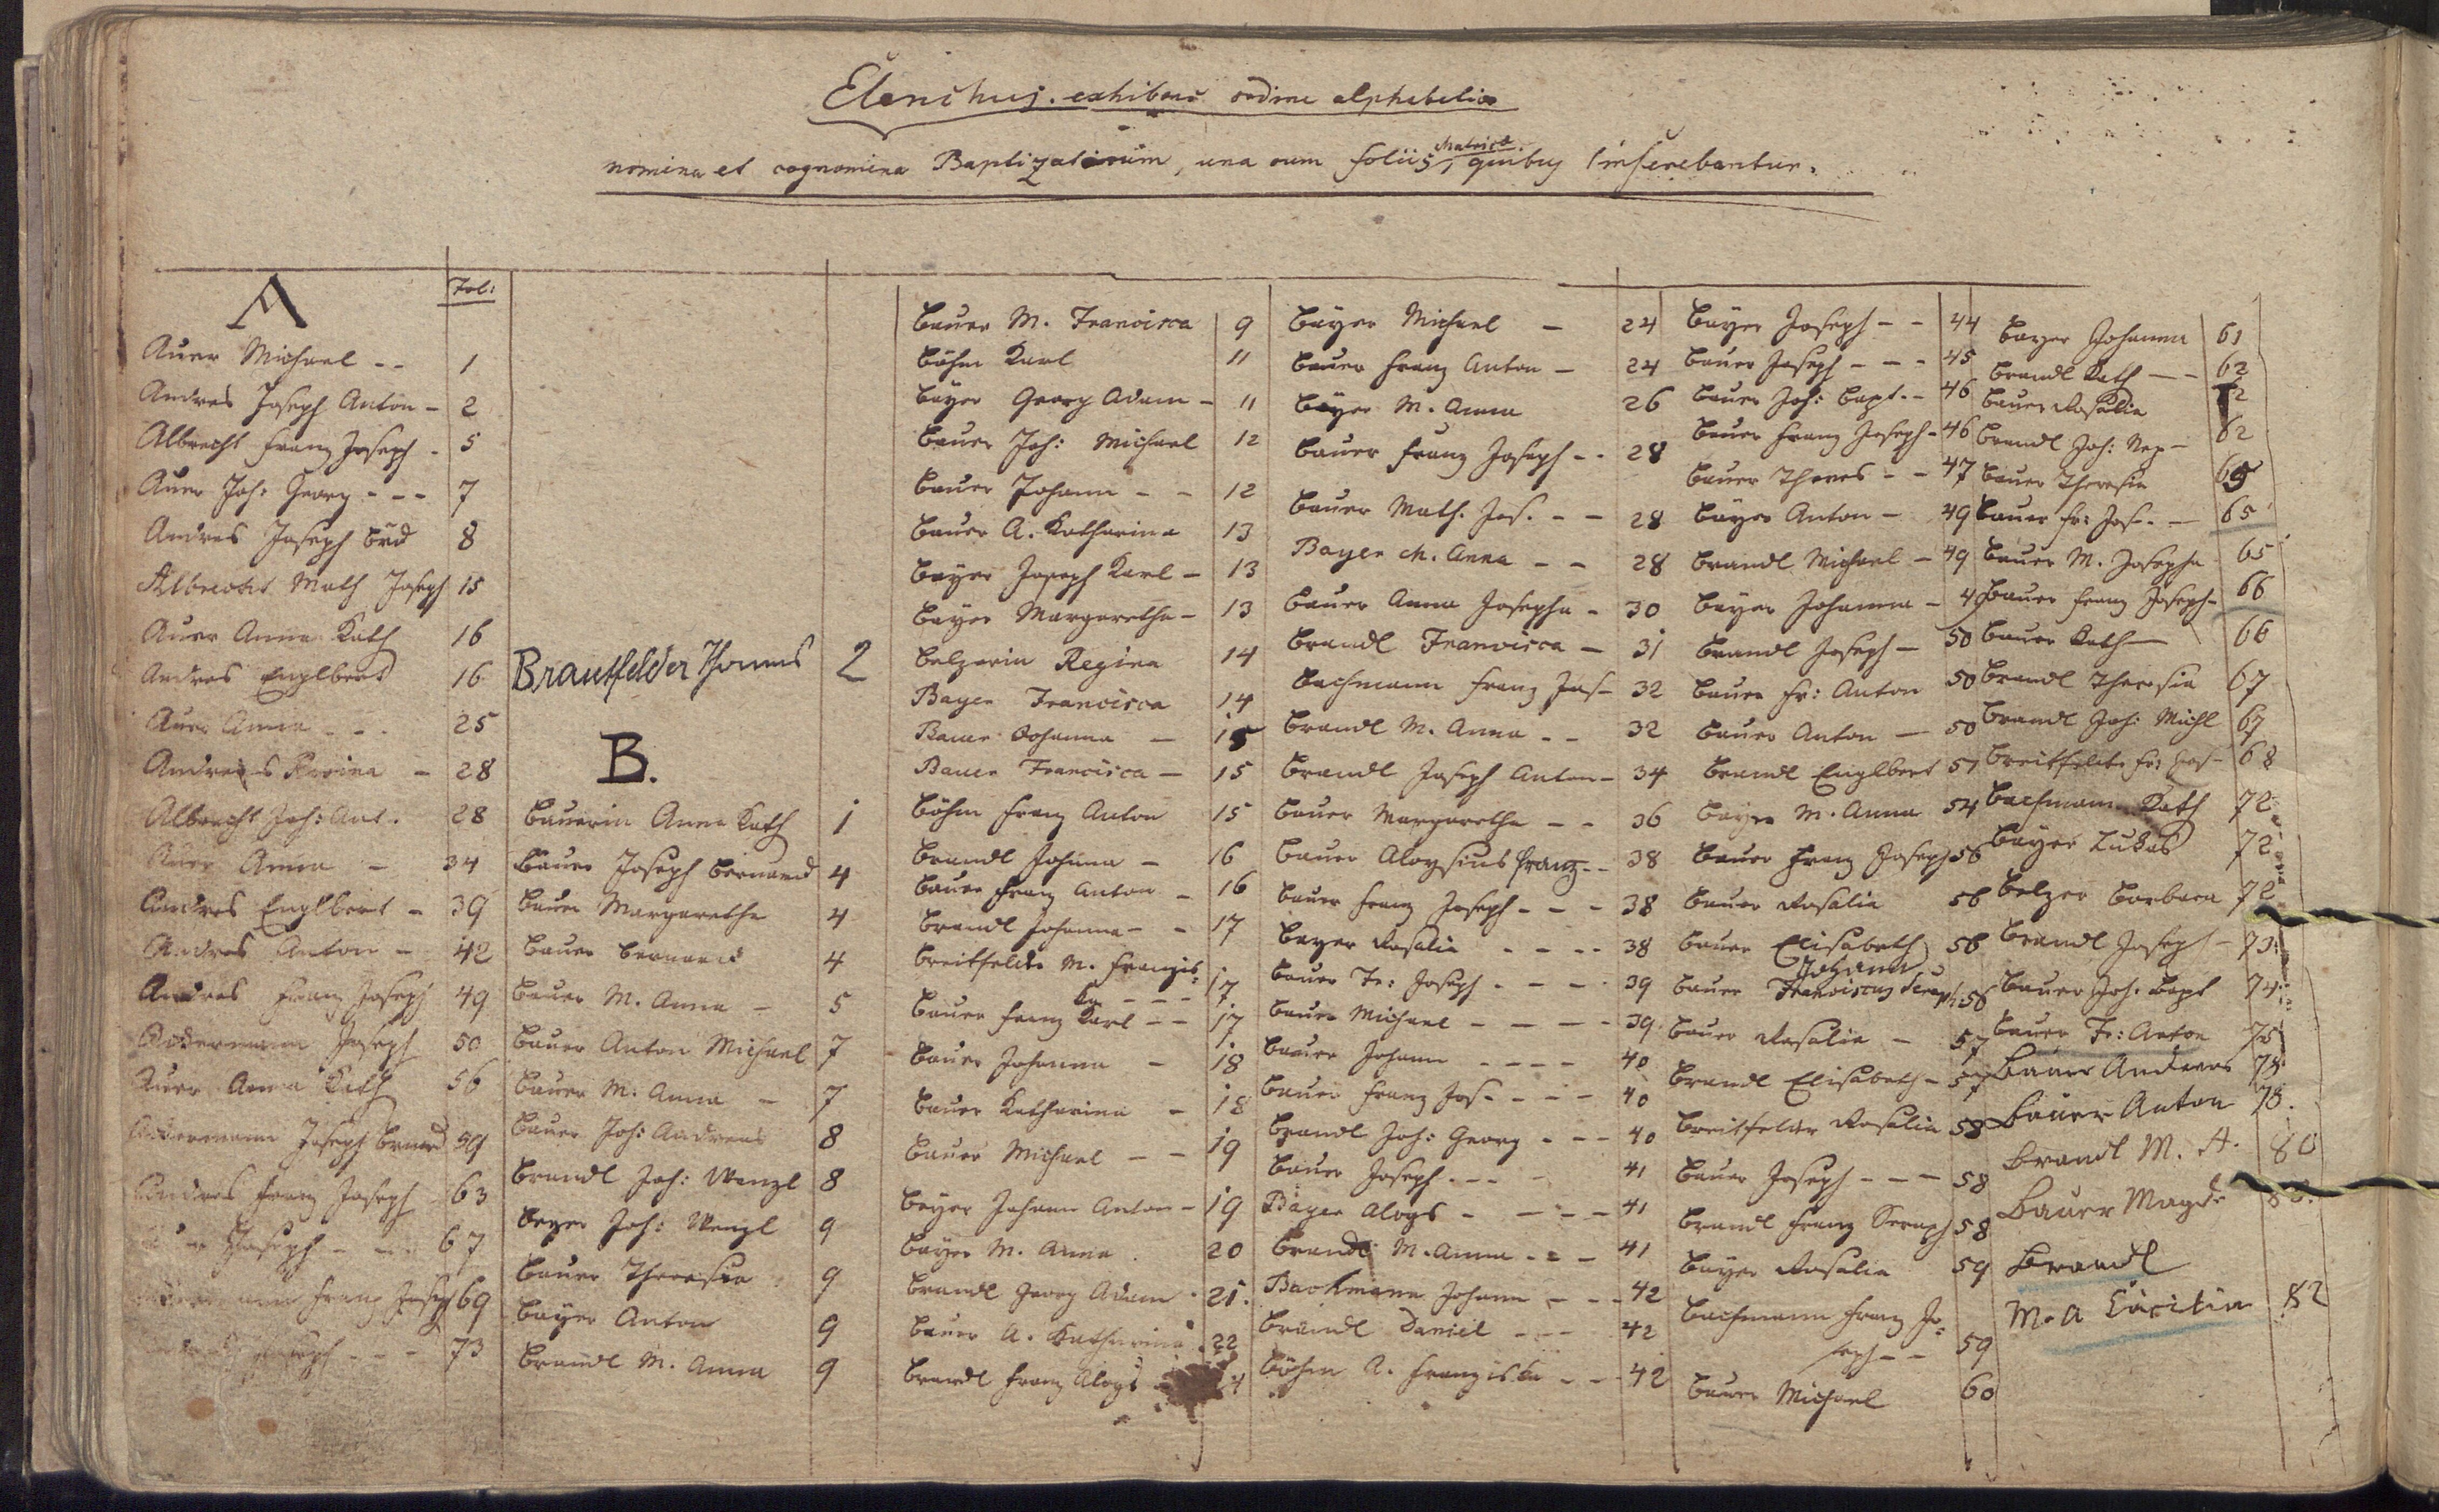 Elenchus exhibens ordine alphabetico
nomina et cognomina Baptizatorum, una cum foliis, Matricæ quibus inserebantur.
A
Fol:
Auer Michael -- 1
Andres Joseph Anton - 2
Albrecht Franz Joseph - 5
Auer Joh: Georg --- 7
Andres Joseph 8
Albrecht Math Joseph 15
Auer Anna Kath 16
Andres Englbert 16
Auer Anna -- 25
Andres - 28
Albrecht Joh: Ant. 28
Auer Anna - 34
Andres Englbert - 39
Andres Anton - 42
Andres Franz Joseph 49
Joseph 50
Auer Anna Kath 56
Joseph
Andres Franz Joseph 63
Joseph -- 67
Franz Joseph 69
Joseph --- 73
Brautfelder Thomas 2
B.
Bauerin Anna Kath 1
Bauer Joseph Bernard 4
Bauer Margaretha 4
Bauer Bernard 4
Bauer M. Anna - 5
Bauer Anton Michael 7
Bauer M. Anna - 7
Bauer Joh: Andreas 8
Brandl Joh: Wenzl 8
Beyer Joh: Wenzl 9
Bauer Theresia 9
Bayer Anton 9
Brandl M. Anna 9
Bauer M. Francisca 9
Böhm Karl 11
Bayer Georg Adam - 11
Bauer Joh: Michael 12
Bauer Johann -- 12
Bauer A. Katharina 13
Bayer Joseph Karl - 13
Bayer Margaretha - 13
Belzerin Regina 14
Bayer Francisca 14
Bauer Johanna - 15
Bauer Francisca - 15
Böhm Franz Anton 15
Brandl Johanna - 16
Bauer Franz Anton - 16
Brandl Johanna -- 17
Breitfelder M. Franzis:
ka --- 17
Bauer Franz Karl -- 17
Bauer Johanna - 18
Bauer Katharina - 18
Bauer Michael -- 19
Bayer Johann Anton - 19
Bayer M. Anna 20
Brandl Georg Adam 21.
Bauer A. Katharina 22
Brandl Franz Aloys
Bayer Michael - 24
Bauer Franz Anton - 24
Bayer M. Anna 26
Bauer Franz Joseph -- 28
Bauer Math. Jos. -- 28
Bayer M. Anna -- 28
Bauer Anna Josepha - 30
Brandl Francisca - 31
Bachmann Franz Jos- 32
Brandl M. Anna -- 32
Brandl Joseph Anton - 34
Bauer Margaretha -- 36
Bauer Aloysius Franz -- 38
Bauer Franz Joseph --- 38
Bayer Rosalia ---- 38
Bauer Fr: Joseph ---- 39
Bauer Michael ---- 39
Bauer Johann ---- 40
Bauer Franz Jos. --- 40
Brandl Joh: Georg --- 40
Bauer Joseph --- 41
Bayer Aloys ---- 41
Brandl M. Anna --- 41
Bachmann Johann --- 42
Brandl Daniel --- 42
Böhm A. Franziska -- 42
Bayer Joseph -- 44
Bauer Joseph --- 45
Bauer Joh: Bapt. - 46
Bauer Franz Joseph - 46
Bauer Theres -- 47
Bayer Anton - 49
Brandl Michael - 49
Bayer Johanna - 49
Brandl Joseph - 50
Bauer Fr: Anton 50
Bauer Anton - 50
Brandl Englbert 51
Bayer M. Anna 54
Bauer Franz Joseph 56
Bauer Rosalia 56
Bauer Elisabeth 56
Johann
Bauer Franciscus Seraph: 56
Bauer Rosalia - 57
Brandl Elisabeth - 57
Breitfelder Rosalia 58
Bauer Joseph --- 58
Brandl Franz Seraph 58
Bayer Rosalia 59
Bachmann Franz Jo:
seph -- 59
Bauer Michael 60
Bayer Johanna 61
Brandl Kath -- 62
Bauer Rosalia
Brandl Joh: Nep - 62
Bauer Theresia
Bauer Fr: Jos. - 65
Bauer M. Josepha 65
Bauer Franz Joseph - 66
Bauer Kath - 66
Brandl Theresia 67
Brandl Joh: Michl 67
Breitfelder Fr: Jos- 68
Bachmann Kath 72
Bayer Lukas 72
Belzer Barbara 72
Brandl Joseph - 73
Bauer Joh. Bapt 74
Bauer Fr: Anton 75
Bauer Andreas 78
Bauer Anton 78.
Brandl M. A. 80
Bauer Magd.
Brandl
M. A Cäcilia 82